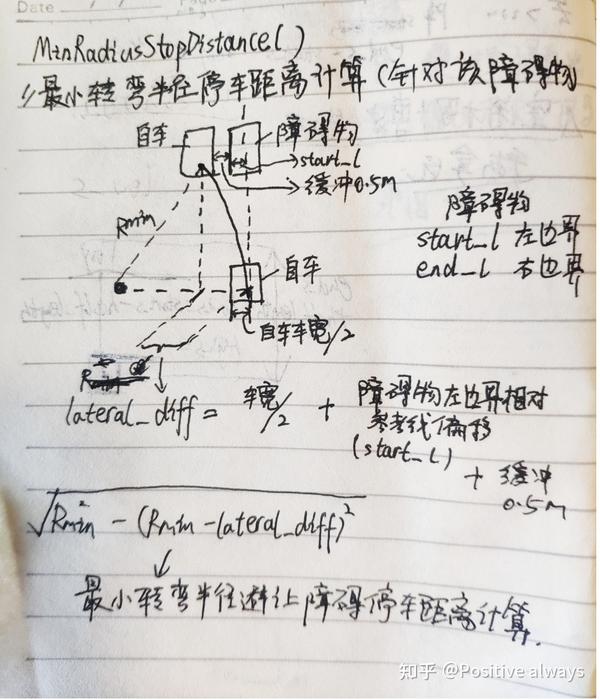 Date
MinRadiusStopDistance()
//最小转弯半径停车距离计算(针对该障碍物)
自车
障碍物
start_l
缓冲0.5m
Rmin
障碍物
start_l 左边界
end_l 右边界
自车
自车车宽/2
lateral_diff = 车宽/2 + 障碍物左边界相对
参考线偏移
(start_l)
+ 缓冲
0.5m
√Rmin² - (Rmin - lateral_diff)²
最小转弯半径避让障碍停车距离计算.
知乎 @Positive always